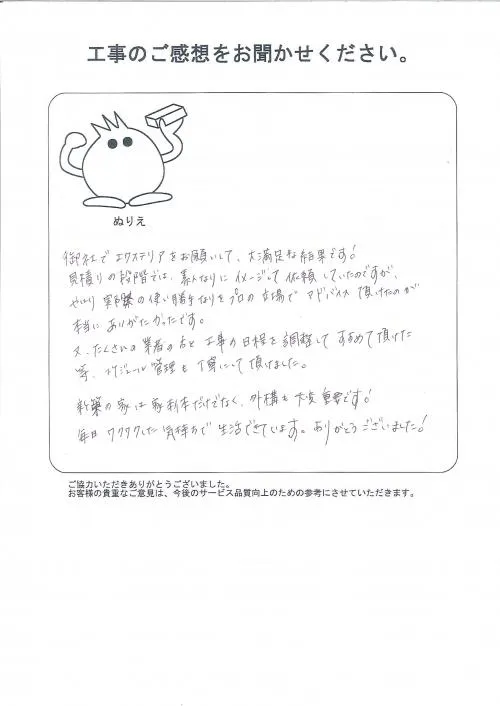 工事のご感想をお聞かせください。
ぬりえ
御社でエクステリアをお願いして、大満足な結果です!
見積りの段階では、素人なりにイメージして依頼していたのですが、
やはり実際の使い勝手なりをプロの立場でアドバイス頂けたのが
本当にありがたかったです。
又、たくさんの業者の方と工事の日程を調整してすすめて頂けた
等、スケジュール管理も丁寧にして頂けました。
新築の家は家本体だけでなく、外構も大変重要です!
毎日ワクワクした気持ちで生活できています。ありがとうございました!
ご協力いただきありがとうございました。
お客様の貴重なご意見は、今後のサービス品質向上のための参考にさせていただきます。